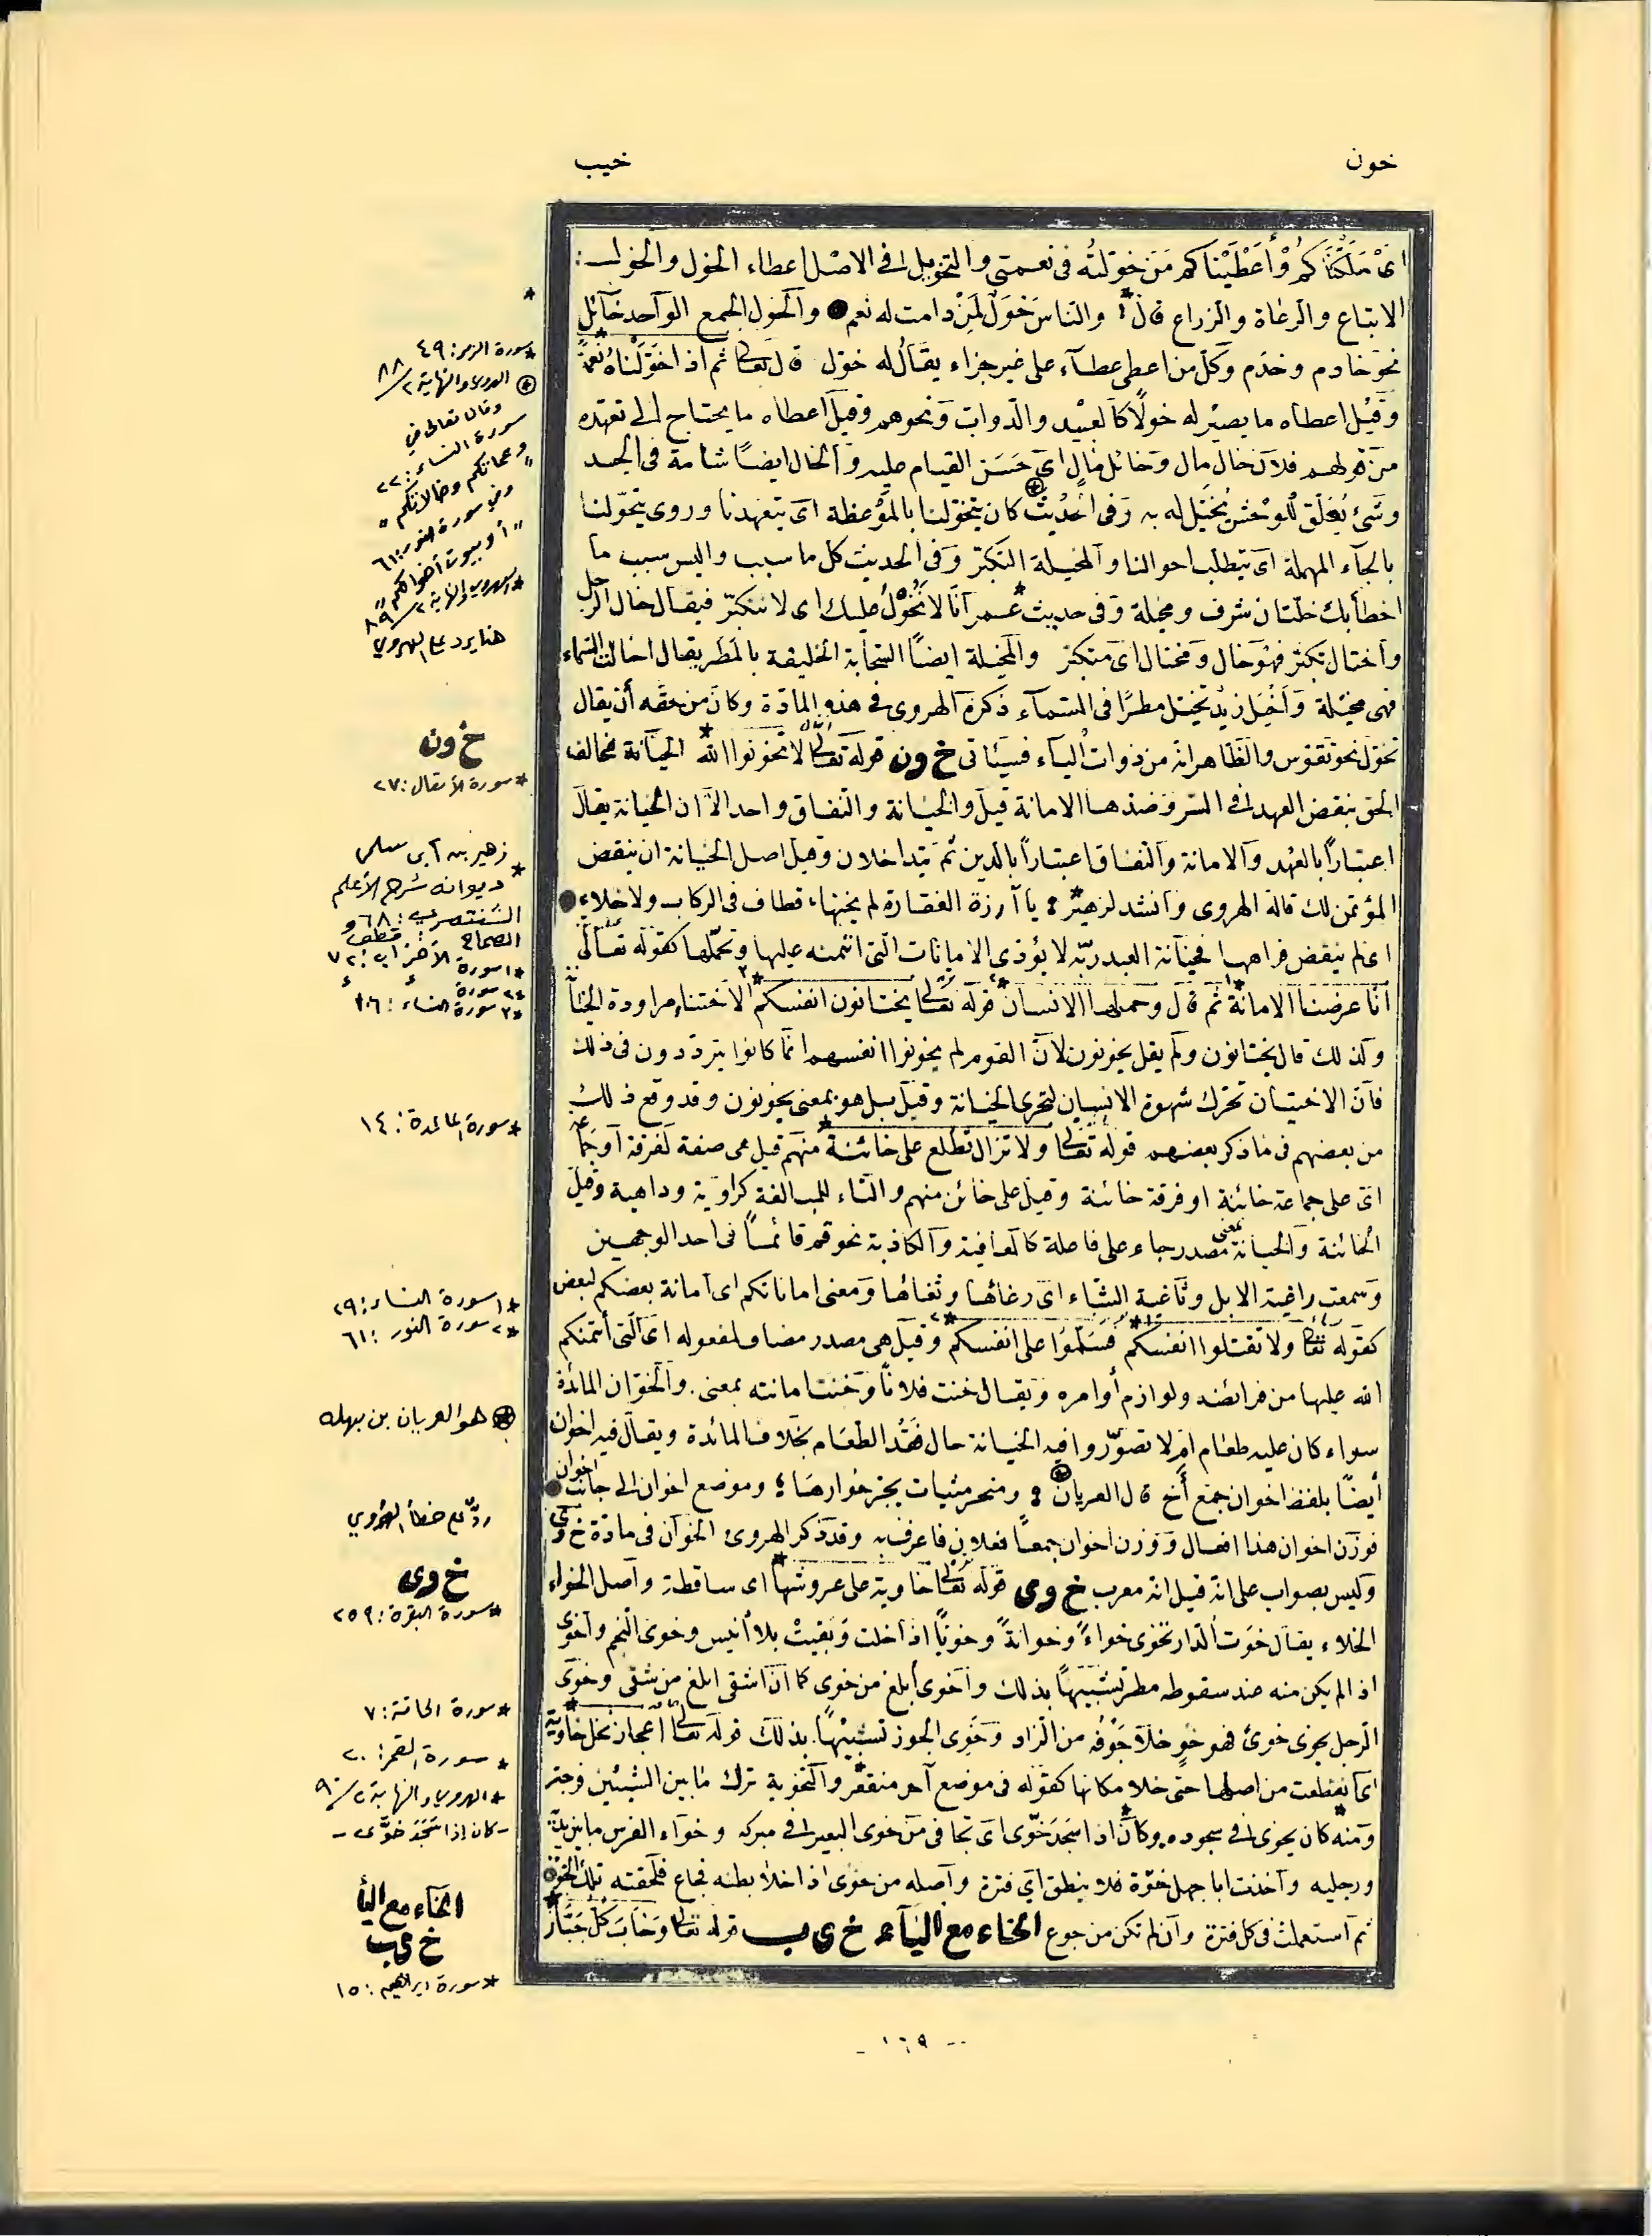 خون
خيب
اى ملكناكم وأعطيناكم من خولته فى نعمتى والتخويل فى الاصل اعطاء الخول والخول :
الاتباع والرعاة والزراع قال : والناس خول لمن دامت له نعم والخول الجمع الواحد خائل
نحو خادم وخدم وكل من اعطى عطاء على غير جزاء يقال له خول قال تعالى ثم اذا خولناه نعمة
وقيل اعطاه ما يصير له خولا كالعبيد والدواب ونحوهم وقيل اعطاه ما يحتاج الى تعهده
من قولهم فلان خال مال وخائل مال اى حسن القيام عليه والخال ايضا شامة فى الجسد
وشىء يعلق للوحش يخيل له به وفى الحديث كان يتخولنا بالموعظة اى يتعهدنا وروى يتحولنا
بالحاء المهملة اى يتطلب احوالنا والمخيلة التكبر وفى الحديث كل ما سبب والبس سبب ما
اخطأ بك خلتان شرف ومخيلة وفى حديث عمر انا لا نخول عليك اى لا نتكبر فيقال خال الرجل
واختال تكبر فهو خال ومختال اى متكبر والمخيلة ايضا السحابة الخليقة بالمطر يقال اخالت السماء
فهى مخيلة واخيل زيد تخيل مطرا فى السماء ذكره الهروى فى هذه المادة وكان من حقه أن يقال
تخول نحو تقوس والظاهر انه من ذوات الياء فسيأتى خ ون قوله تعالى لا تخونوا الله الخيانة مخالفة
الحق بنقض العهد فى السر وضدها الامانة قيل والخيانة والنفاق واحد الا ان الخيانة يقال
اعتبارا بالعهد والامانة والنفاق اعتبارا بالدين ثم يتداخلان وقيل اصل الخيانة ان ينقض
المؤتمن لك قاله الهروى وانشد لزهير : يا آرزة الفقارة لم يخنها، قطاف فى الركاب ولا خلاء
اى لم ينقض فراهها فخيانة العبد ربه لا يؤدى الامانات التى ائتمنه عليها وتحملها كقوله تعالى
انا عرضنا الامانة ثم قال وحملها الانسان قوله تعالى يختانون انفسهم الاختتناء مراودة الخيانة
ولذلك قال يختانون ولم يقل يخونون لان القوم لم يخونوا انفسهم انما كانوا يترددون فى ذلك
فان الاختيان تحرك شهوة الانسان لتحرى الخيانة وقيل بل هو بمعنى يخونون وقد وقع ذلك
من بعضهم فى ما ذكر بعضهم قوله تعالى ولا تزال تطلع على خائنة منهم قيل هى صفة لفرقة او جماعة
اى على جماعة خائنة او فرقة خائنة وقيل على خائن منهم والتاء للمبالغة كراوية وداهية وقيل
الخائنة والخيانة بمعنى مصدر جاء على فاعلة كالعافية والكاذبة نحو قم قائما فى احد الوجهين
وسمعت راغية الابل وثاغية الشاء اى رغائها وثغائها ومعنى اماناتكم اى امانة بعضكم لبعض
كقوله تعالى ولا تقتلوا انفسكم فسلموا على انفسكم وقيل هى مصدر مضاف لمفعوله اى التى أئتمنكم
الله عليها من فرائضه ولوازم أوامره ويقال خنت فلانا وخنت امانته بمعنى. والخوان المائدة
سواء كان عليه طعام ام لا تصوروا فيه الخيانة حال فقد الطعام بخلاف المائدة ويقال فيه اخوان
أيضا بلفظ اخوان جمع أخ قال العريان : ومنحر مئيات يجر خوارها ؛ وموضع اخوان الى جانب اخوان
فوزن اخوان هذا افعال ووزن اخوان جمعا فعلان فاعرفه وقد ذكر الهروى الخوان فى مادة خ وى
وليس بصواب على انه قيل انه معرب خ وى قوله تعالى خاوية على عروشها اى ساقطة واصل الخواء
الخلاء يقال خوت الدار تخوى خواء وخواية وخويا اذا خلت وبقيت بلا أنيس وخوى النجم واخوى
اذا لم يكن منه عند سقوطه مطر تشبيها بذلك واخوى أبلغ من خوى كما ان اشقى ابلغ من شقى وخوى
الرجل يخوى خوى فهو خو خلا جوفه من الزاد وخوى الجوز تشبيها بذلك قوله تعالى اعجاز نخل خاوية
اى انقطعت من اصلها حتى خلا مكانها كقوله فى موضع آخر منقعر والتخوية ترك ما بين الشيئين فرجة
ومنه كان يخوى فى سجوده وكان اذا سجد خوى اى تجافى من خوى البعير فى مبركه وخواء الفرس ما بين يديه
ورجليه واخذت ابا جهل خوة فلا ينطق اى فترة واصله من خوى اذا خلا بطنه فجاع فلحقته تلك الخوة
ثم استعملت فى كل فترة وان لم تكن من جوع الخاء مع الياء خ ى ب قوله تعالى وخاب كل جبار
* سورة الزمر: ٤٩
الهروى والنهاية ٢/٨٨
وقال تعالى في
سورة النساء: ٢٣
"وعماتكم وخالاتكم"
وفي سورة النور: ٦١
"أو بيوت أخوالكم"
* الهروي والنهاية ٢/٨٩
هنا يرد على الهروي
خ ون
* سورة الأنفال: ٢٧
* زهير بن أبى سلمى
ديوانه شرح الأعلم
الشنتمرى: ٦٨ و
الصحاح: قطف
*١ سورة الأحزاب: ٧٢
*٢ سورة
*٣ سورة النساء: ١٠٦
* سورة المائدة: ١٤
*١ سورة النساء: ٢٩
*٢ سورة النور: ٦١
هو العريان بن سهلة
ردّ على خطأ الهروي
خ وى
* سورة البقرة: ٢٥٩
* سورة الحاقة: ٧
* سورة القمر: ٢٠
* الهروي والنهاية ٢/٩٠
- كان إذا سجد خوّى -
الخاء مع اليأ
خ ى ب
* سورة ابراهيم: ١٥
- ١٦٩ -